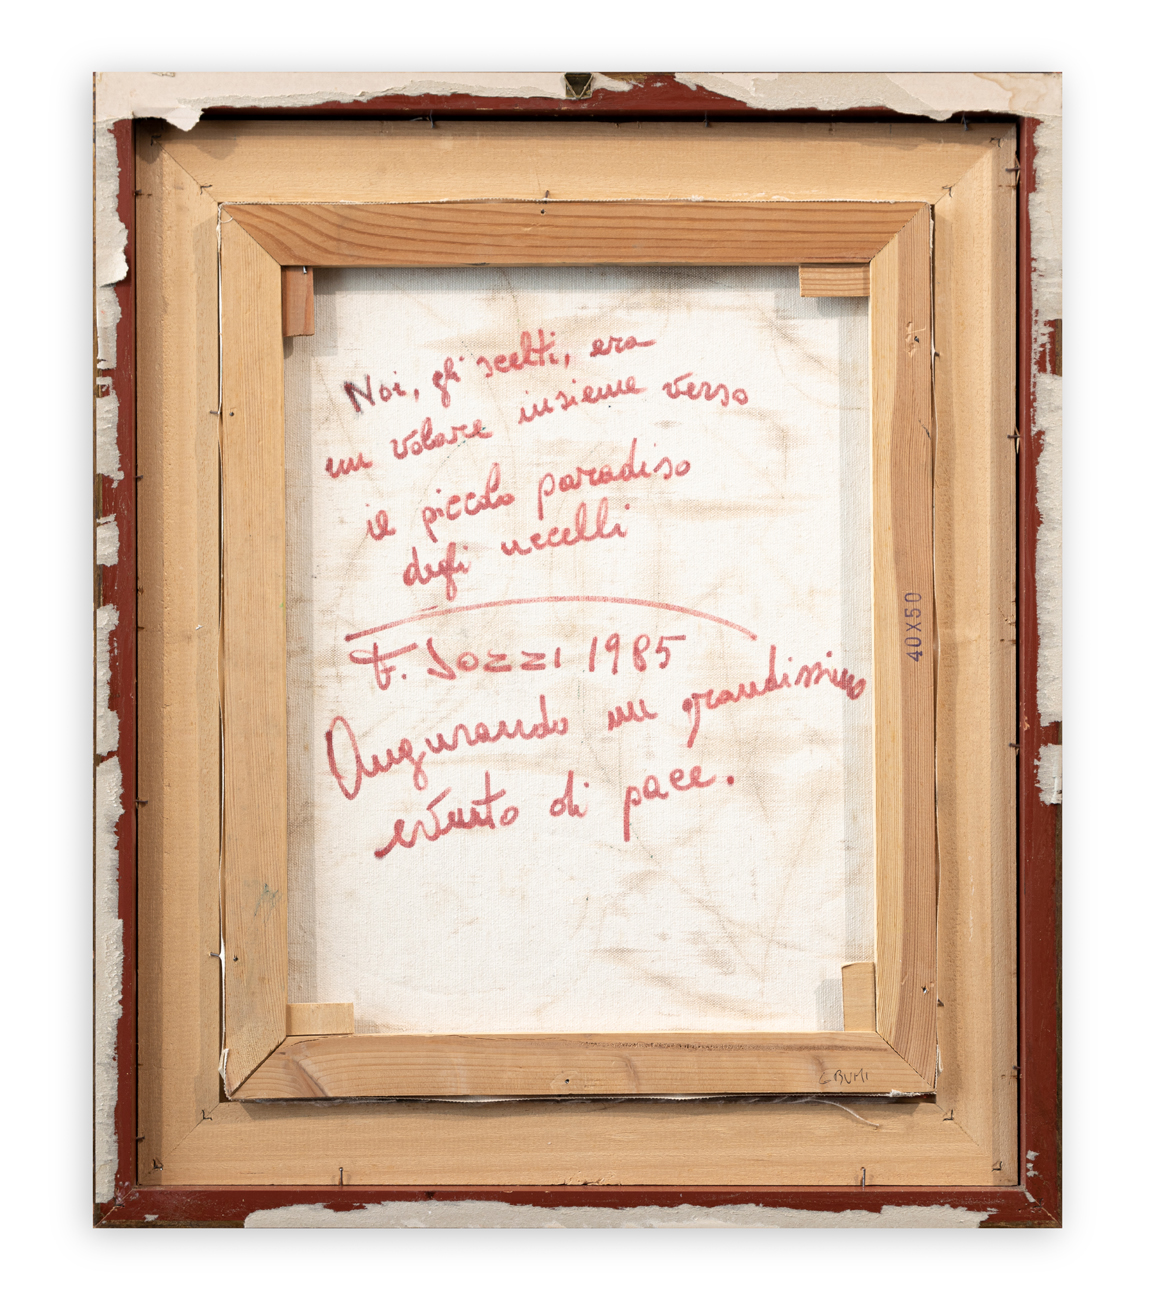 Noi, gli scelti, era
un volare insieme verso
il piccolo paradiso
degli uccelli
F. Jozzi 1985
Augurando un grandissimo
evento di pace.
40X50